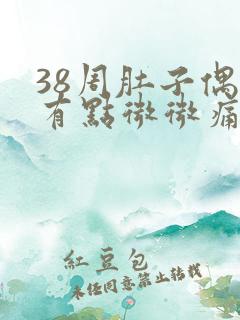 38周肚子偶
有點微微痛
紅豆包
未經同意禁止轉載